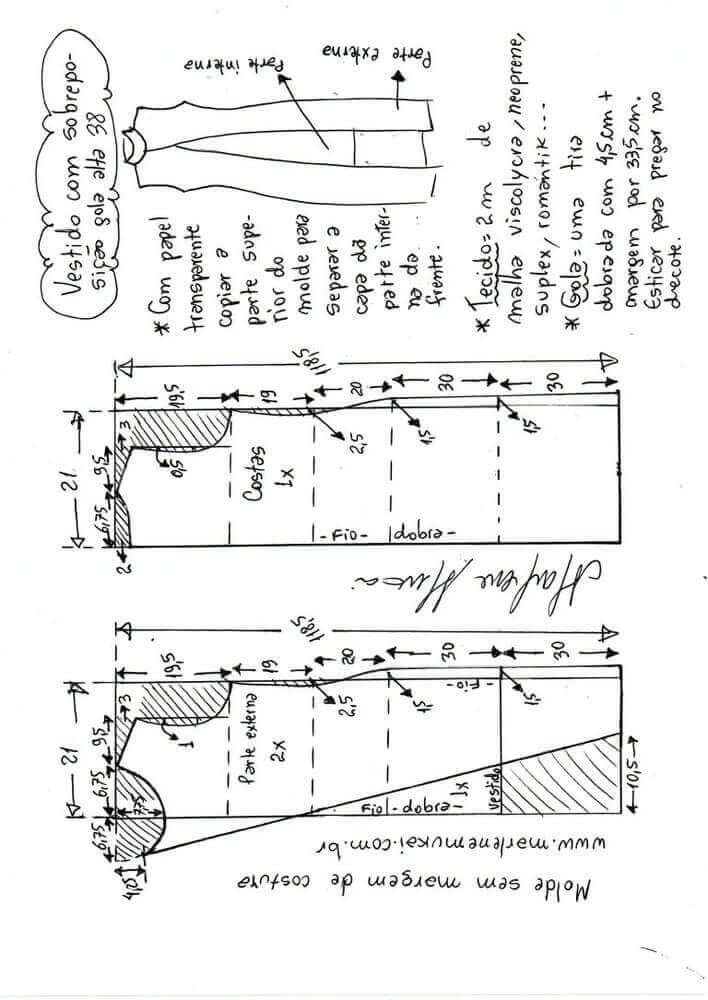 Vestido com sobrepo-
sição gola alta 38
Parte interna
Parte externa
* Com papel
transparente
copiar a
parte supe-
rior do
molde para
separar a
capa da
parte inter-
na da
frente.
* Tecido = 2 m de
malha viscolycra, neoprene,
suplex, romantik...
* Gola = uma tira
dobrada com 4,5cm +
margem por 33,5cm.
Esticar para pregar no
decote.
118,5
19,5
19
20
30
30
21
6,75
9,5
3
2
0,5
Costas
1x
2,5
1,5
1,5
- Fio -
dobra -
Marlene Mukai
118,5
19,5
19
20
30
30
21
6,75
6,75
9,5
3
7,75
4,25
1
Parte externa
2x
2,5
1,5
1,5
Fio -
Fio
- dobra -
1x
vestido
10,5
www.marlenemukai.com.br
Molde sem margem de costura